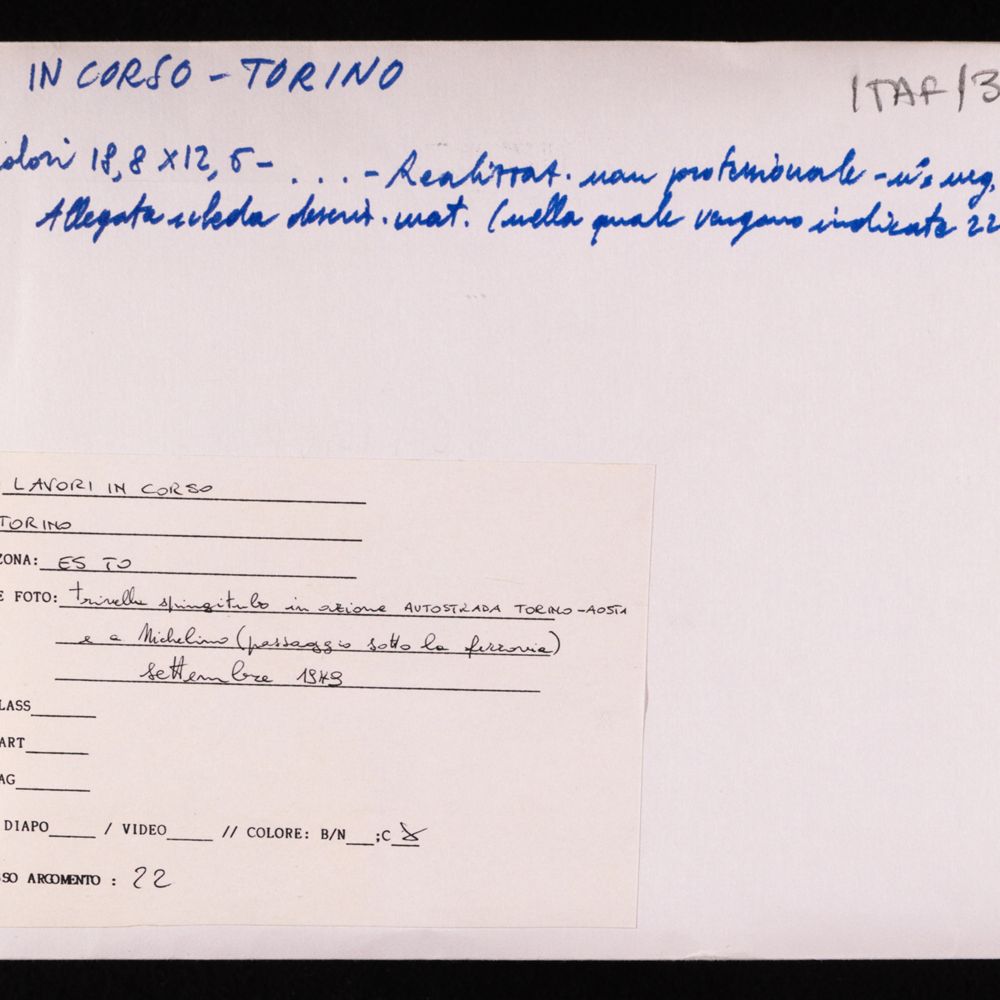 IN CORSO - TORINO
ITAF/3
olori 18,8 X12,5 - . . . - Realizzat. non professionale - n°. neg.
Allegata scheda descrit. mat. (nella quale vengono indicate 22
LAVORI IN CORSO
TORINO
ZONA: ES TO
E FOTO: trivelle spingitubo in azione AUTOSTRADA TORINO-AOSTA
e a Michelino (passaggio sotto la ferrovia)
settembre
LASS
ART
AG
DIAPO / VIDEO // COLORE: B/N ;C X
SO ARGOMENTO : 22